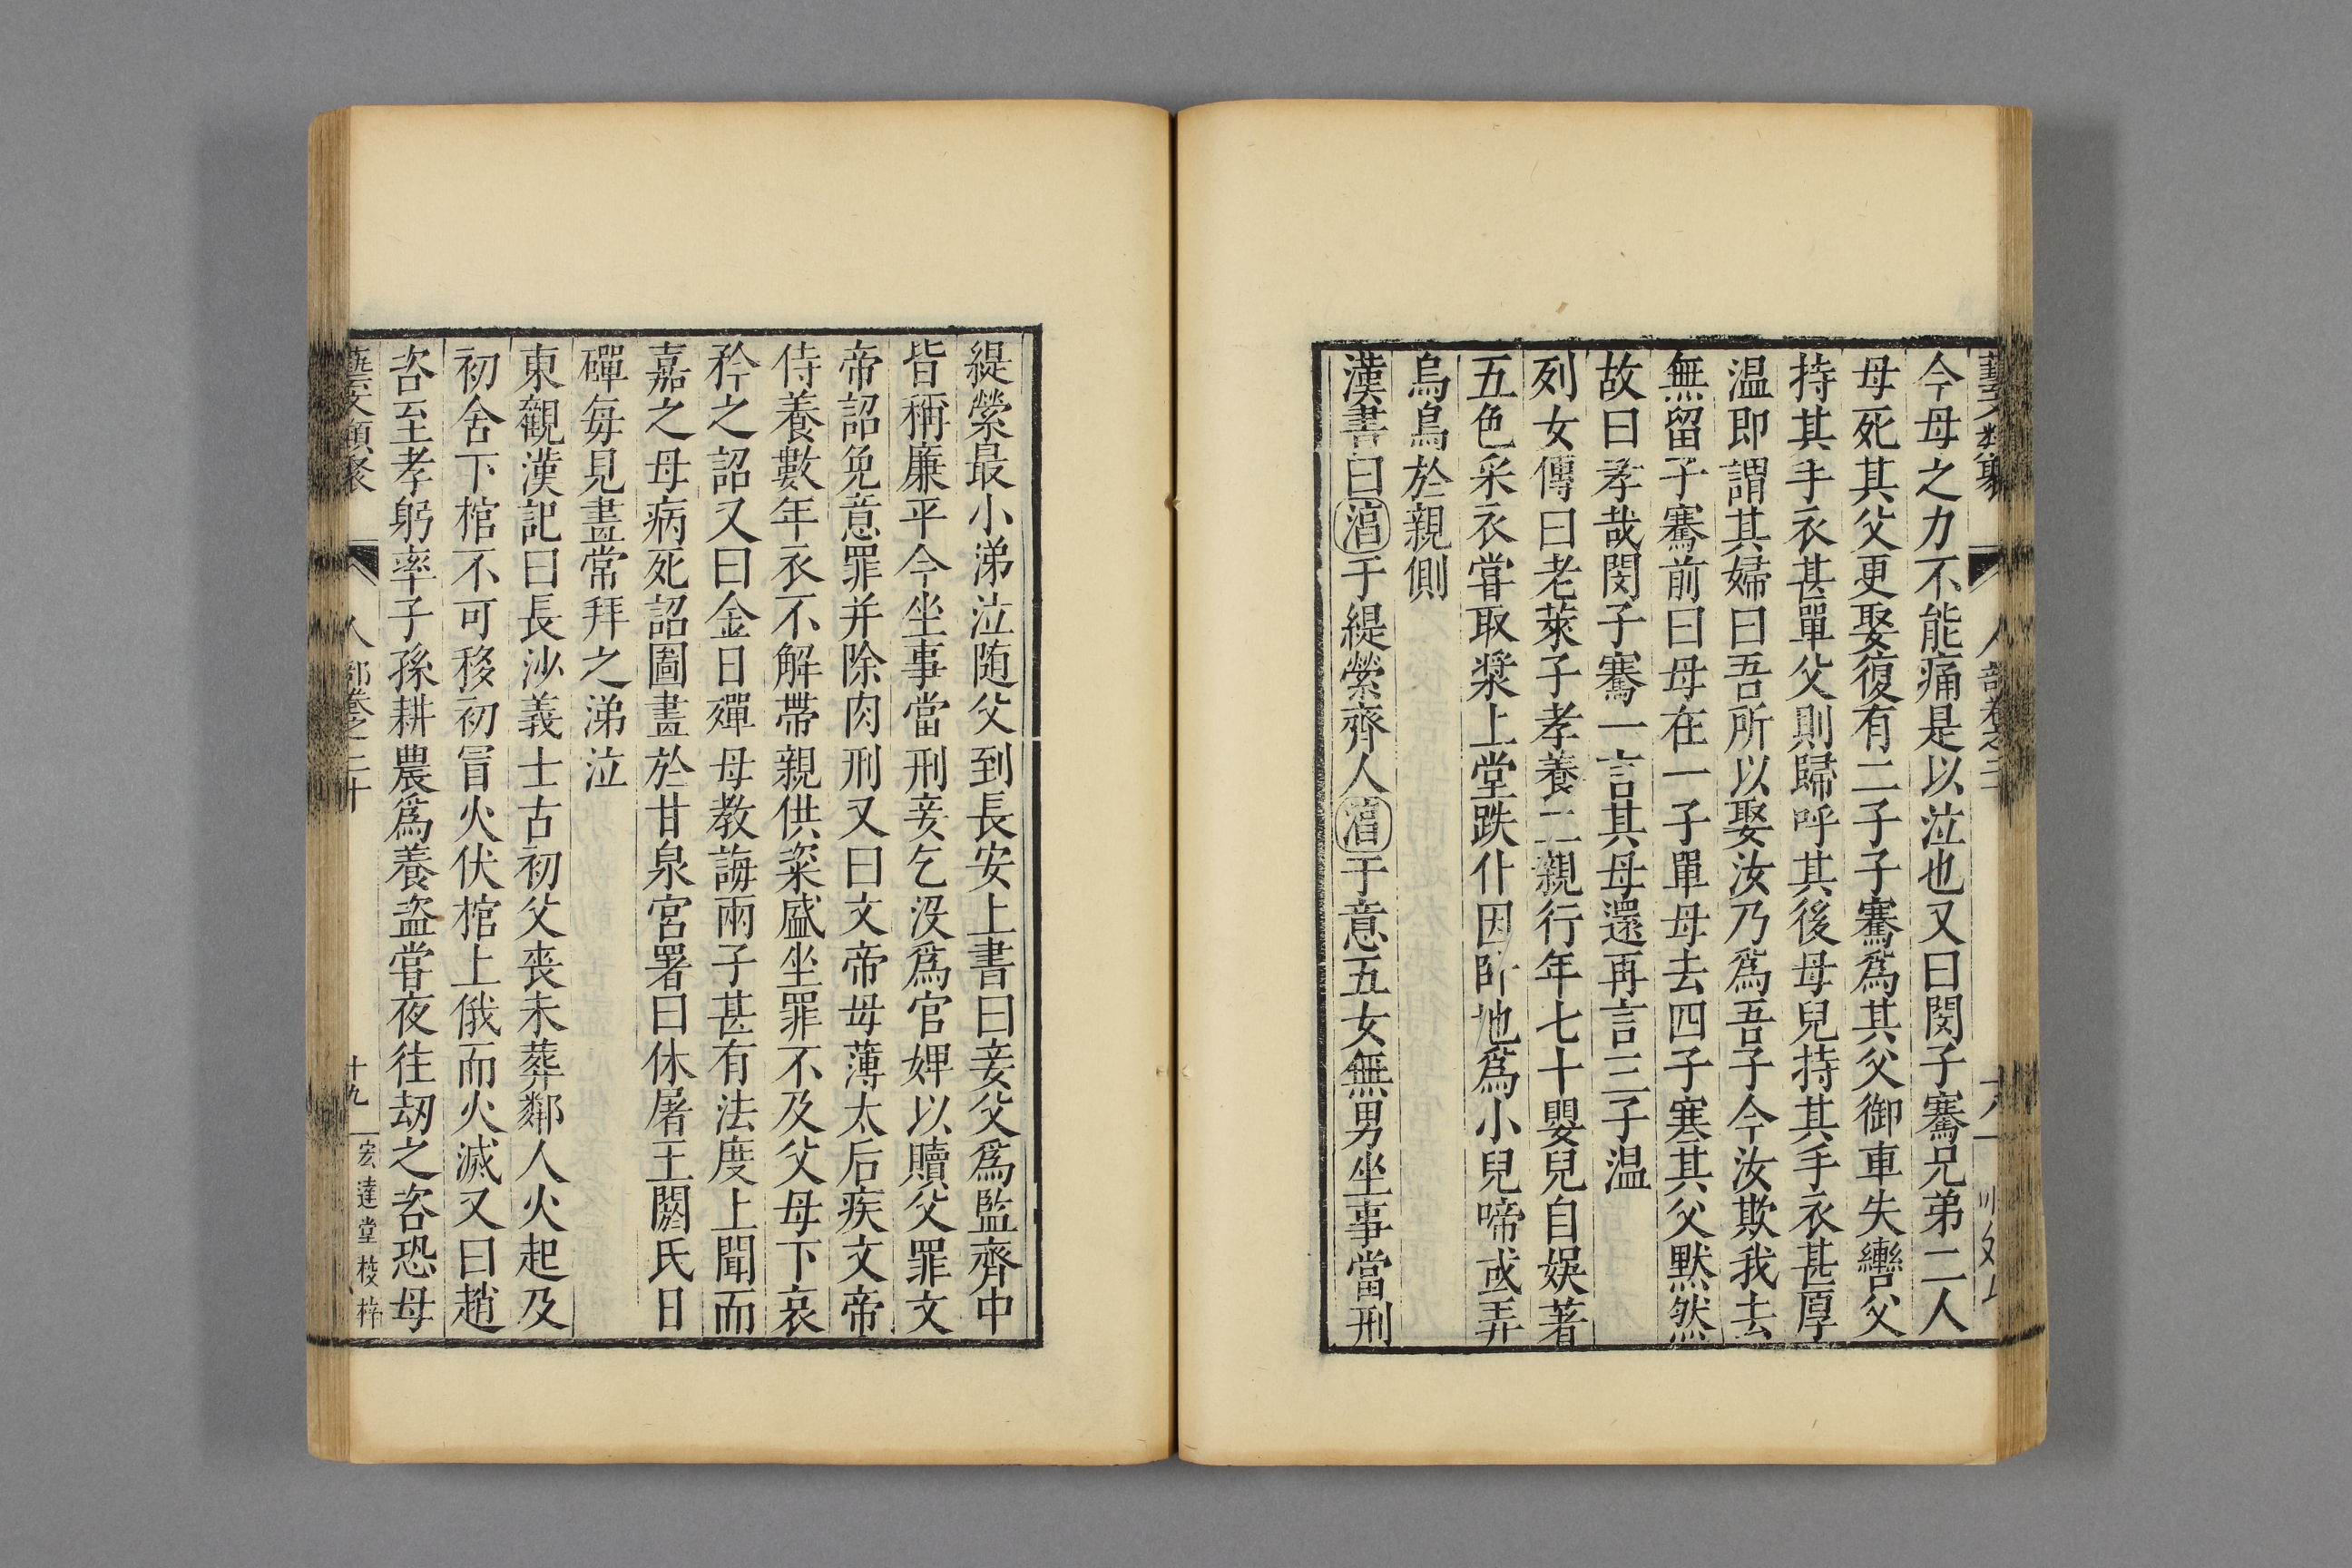 今母之力不能痛是以泣也又曰閔子騫兄弟二人
母死其父更娶復有二子子騫爲其父御車失轡父
持其手衣甚單父則歸呼其後母兒持其手衣甚厚
温即謂其婦曰吾所以娶汝乃爲吾子今汝欺我去
無留子騫前曰母在一子單母去四子寒其父默然
故曰孝哉閔子騫一言其母還再言三子温
列女傳曰老萊子孝養二親行年七十嬰兒自娱著
五色采衣甞取漿上堂跌仆因卧地爲小兒啼或弄
烏鳥於親側
漢書曰淯于緹縈齊人淯于意五女無男坐事當刑
緹縈最小涕泣随父到長安上書曰妾父爲監齊中
皆稱廉平今坐事當刑妾乞没爲官婢以贖父罪文
帝詔免意罪并除肉刑又曰文帝母薄太后疾文帝
侍養數年衣不解帶親供粢盛坐罪不及父母下哀
矜之詔又曰金日殫母教誨兩子甚有法度上聞而
嘉之母病死詔圖畫於甘泉宮署曰休屠王閼氏日
磾每見畫常拜之涕泣
東觀漢記曰長沙義士古初父喪未葬鄰人火起及
初舍下棺不可移初冒火伏棺上俄而火滅又曰趙
咨至孝躬率子孫耕農爲養盗甞夜往刼之咨恐母
藝文類聚 人部卷之二十 十九 宏達堂校梓